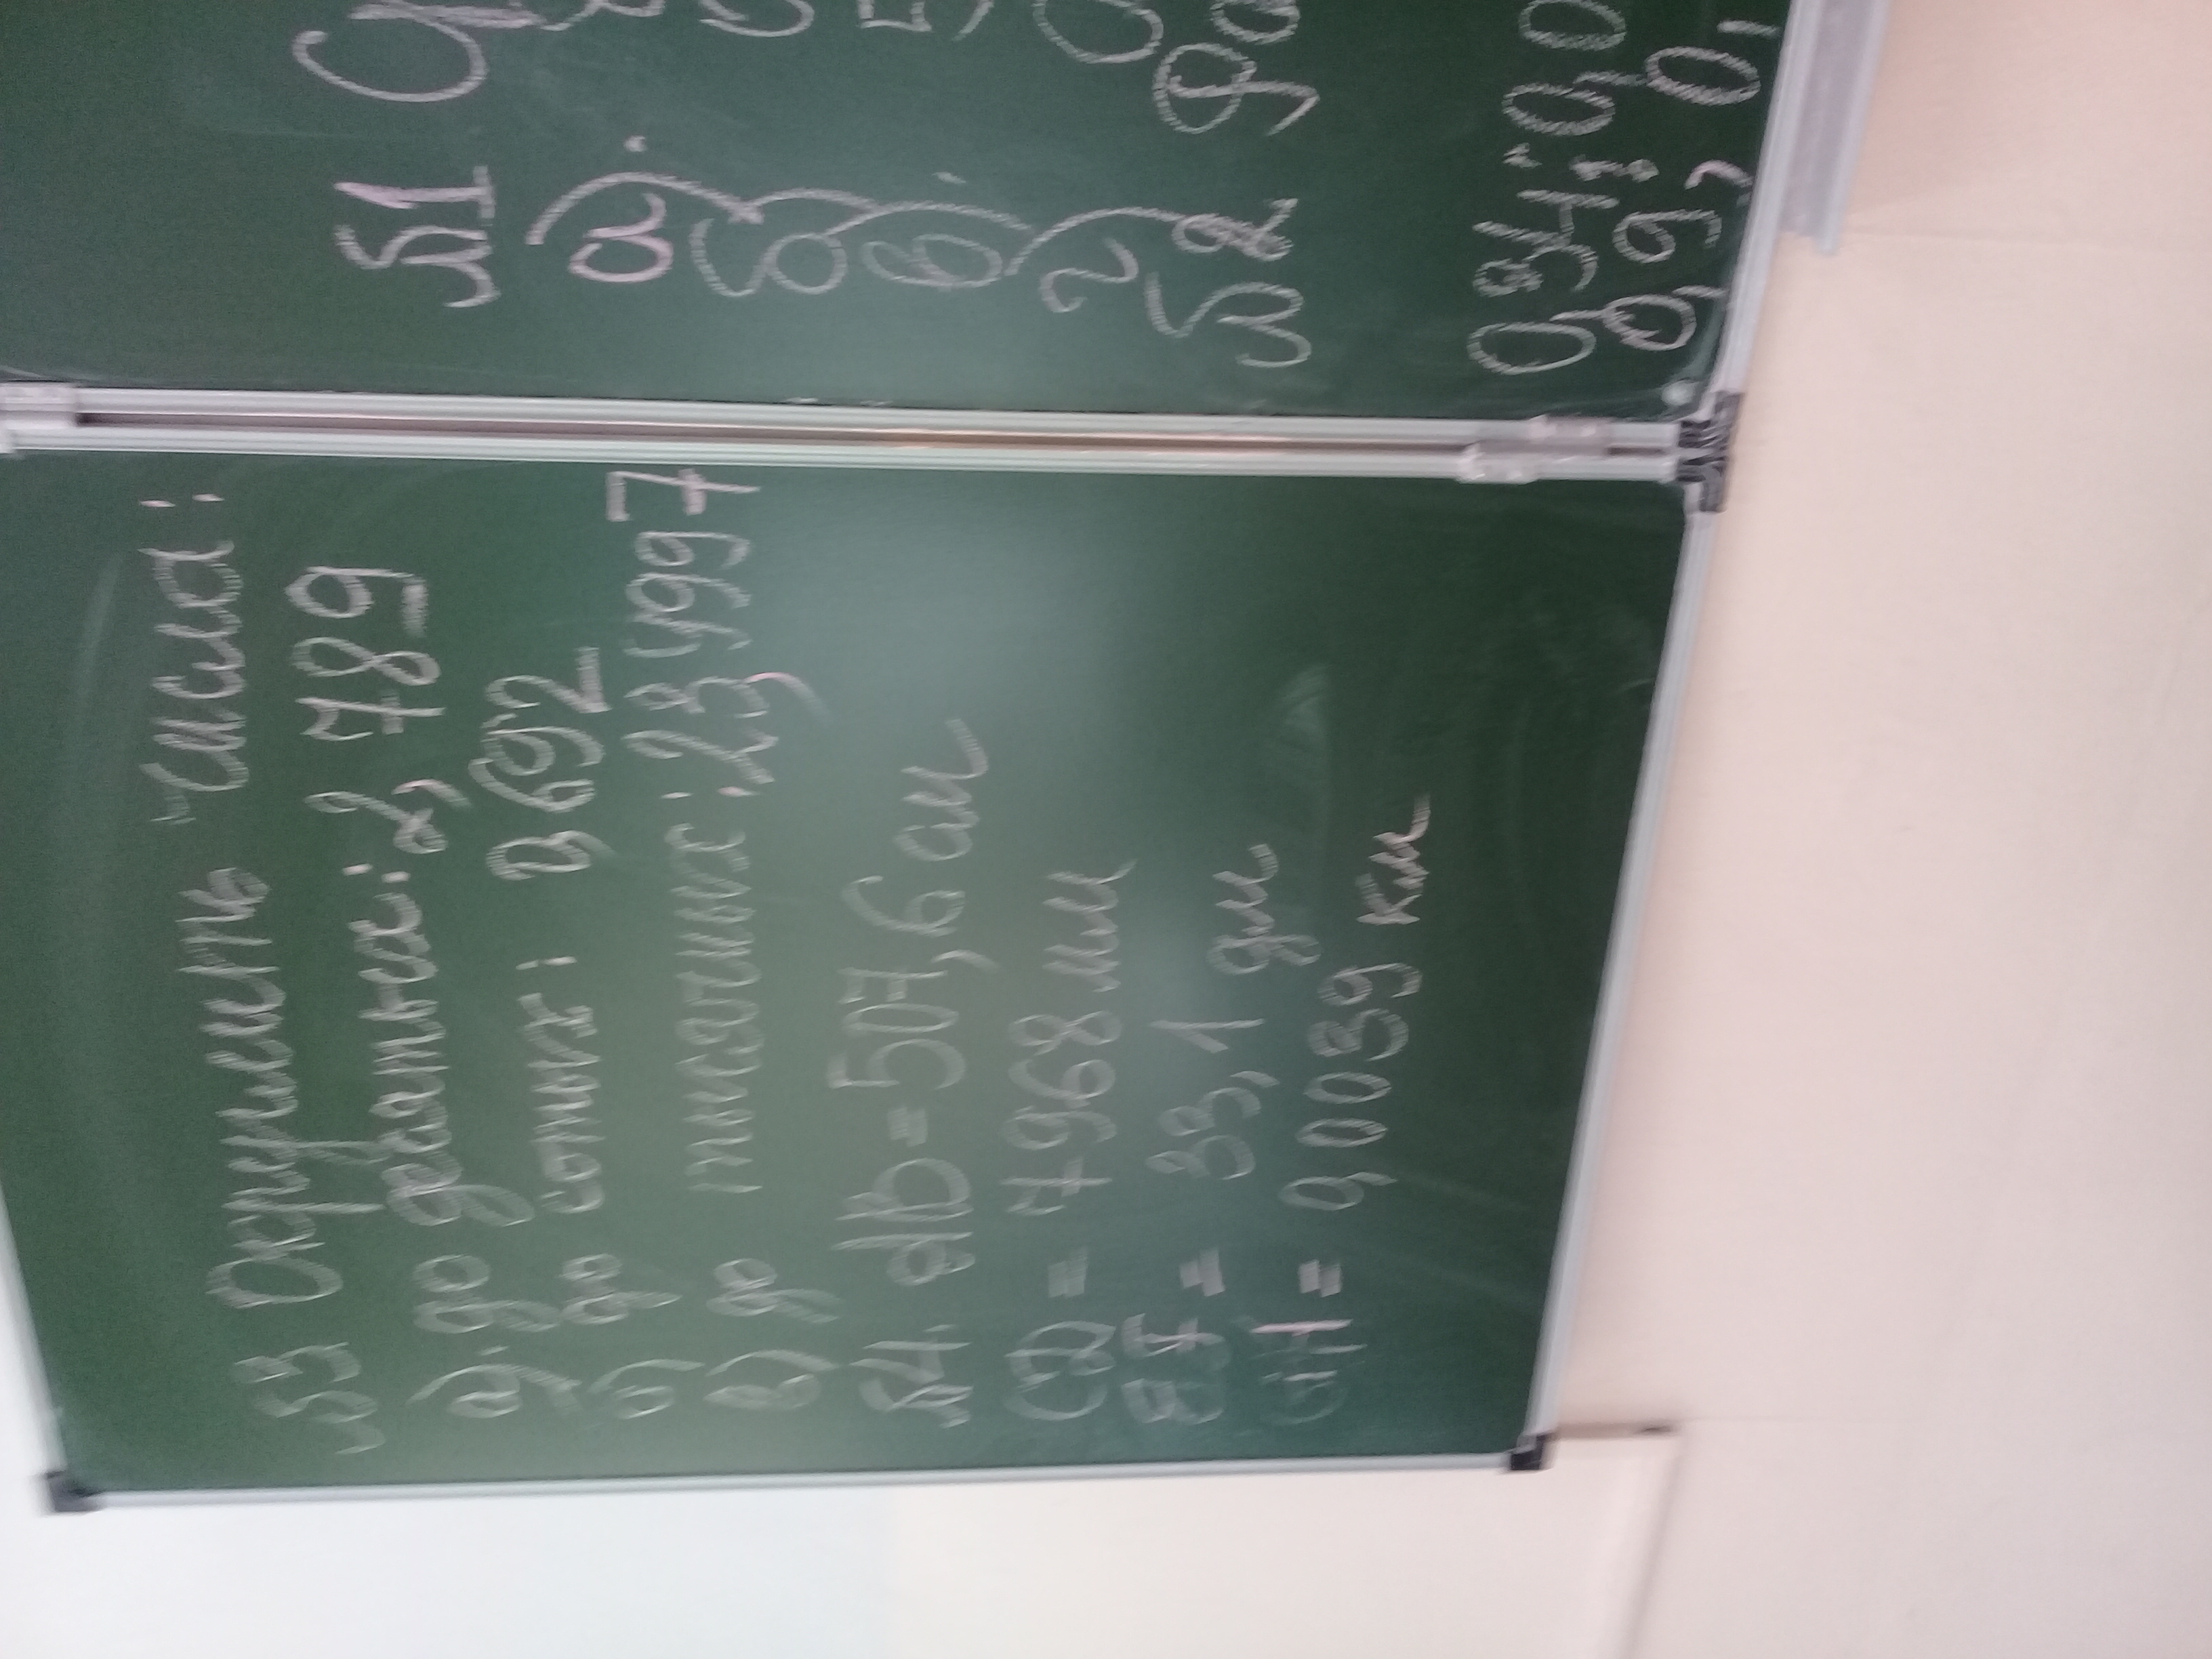 №3 Округлить числа:
а) до десятых: 2,789
б) до сотых: 3,692
в) до тысячных: 28,4997
№4. AB = 507,6 см
CD = 7968 мм
EF = 33,1 дм
GH = 0,0039 км
№1
а)
б)
в)
г)
№2
0,0
0,9; 0,